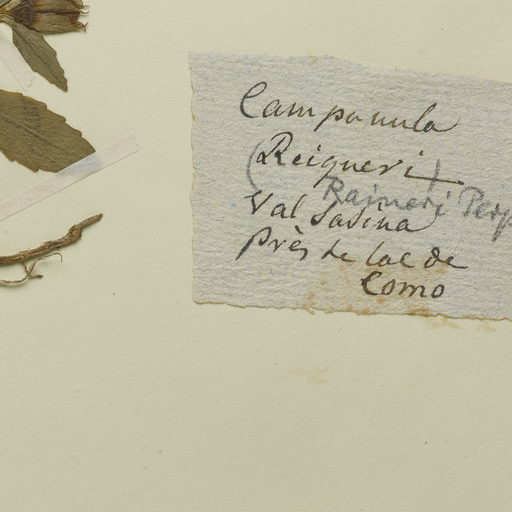 Campanula
(Reigneri)
Raineri Perp
Val Sasina
près de lac de
Como